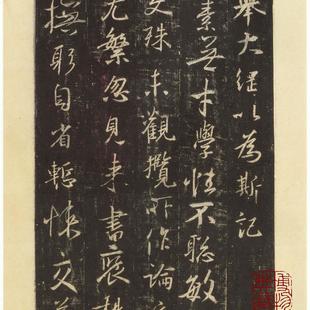 舉大綱以為斯記
素無才學性不聰敏
文殊未觀攬所作論
尤繁忽見來書褒揚
撫躬自省慙悚交